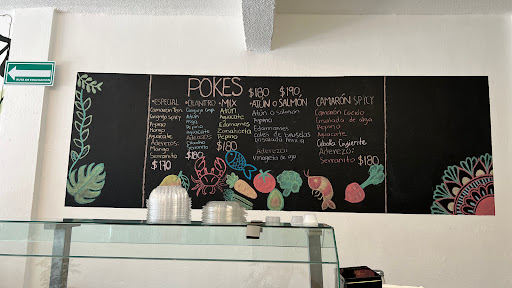 RUTA DE EVACUACIÓN
POKES
$180 $190
•ESPECIAL
Camarón
Cangrejo spicy
Pepino
Mango
Aguacate
Aderezos:
Mango
Serranito
$190
•CILANTRO
Pepino
Aguacate
Cilantro
Serranito
$180
•MIX
Atún
Aguacate
Edamames
Zanahoria
Pepino
$180
•ATÚN O SALMÓN
Atún o salmón
Pepino
Edamames
Coles de bruselas
Ensalada mixta
Aderezo:
Vinagreta de ajo
CAMARÓN SPICY
Camarón Cocido
Ensalada de alga
Pepino
Aguacate
Cebolla Crujiente
Aderezo:
Serranito $180